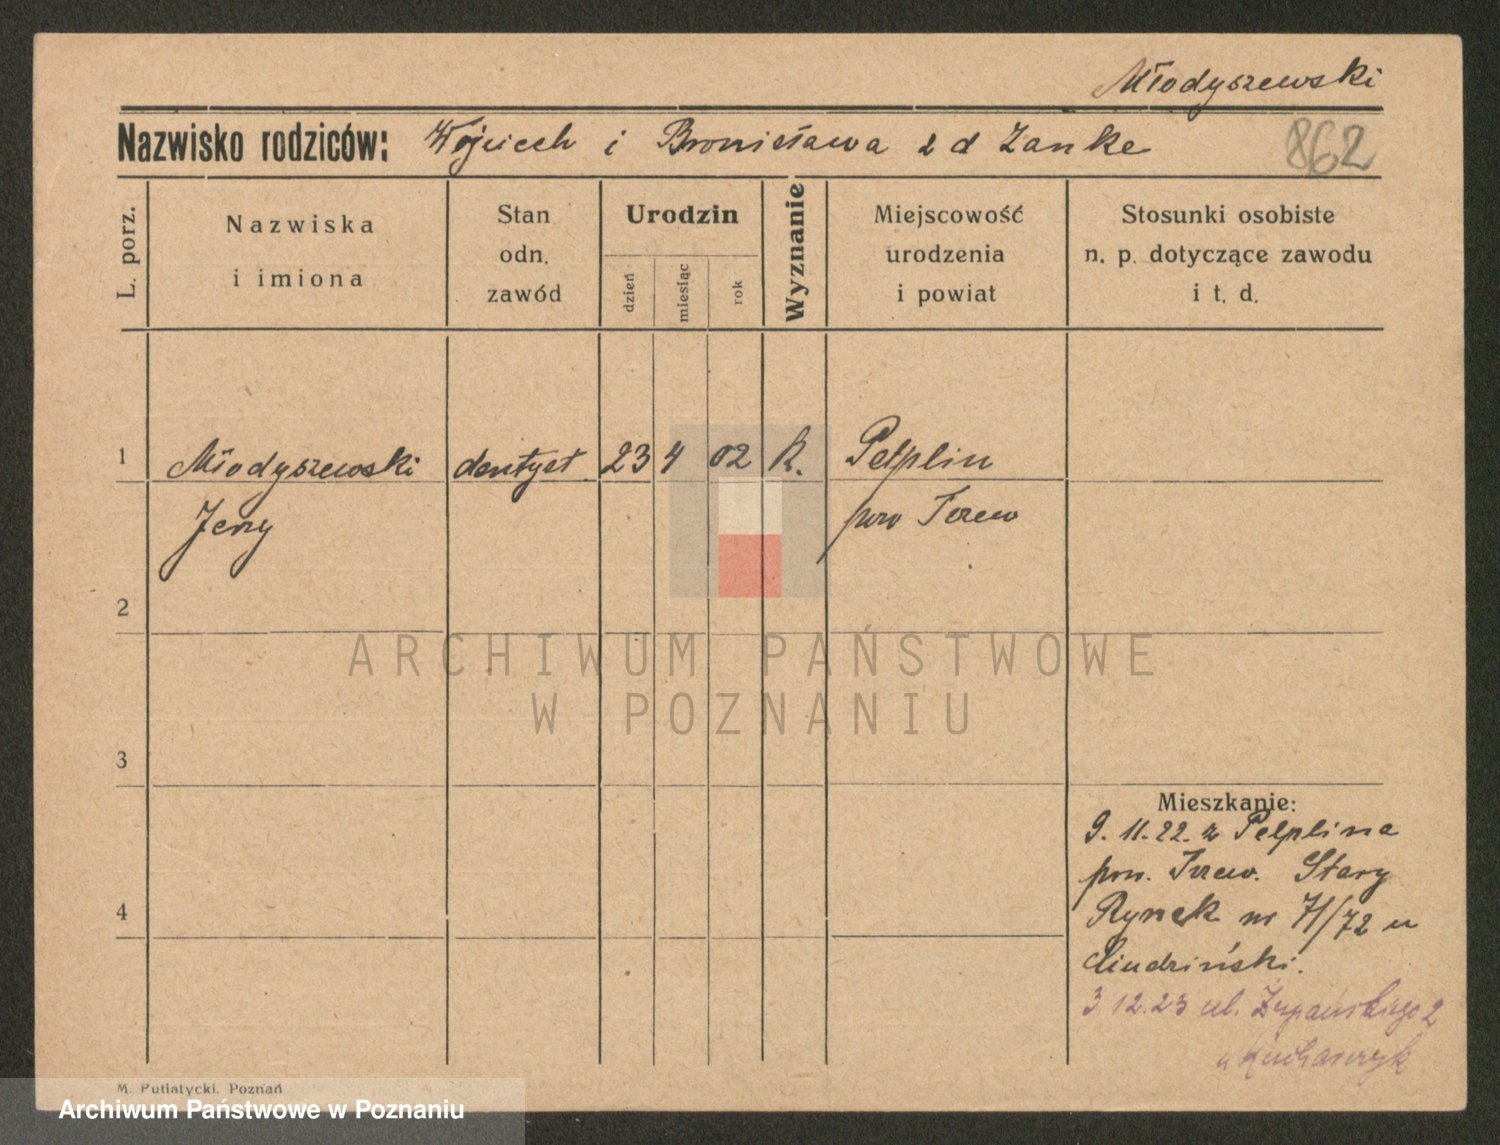 Młodyszewski
Nazwisko rodziców: Wojciech i Bronisława z d Zanke
862
L. porz.
Nazwiska
i imiona
Stan
odn.
zawód
Urodzin
dzień
miesiąc
rok
Wyznanie
Miejscowość
urodzenia
i powiat
Stosunki osobiste
n. p. dotyczące zawodu
i t. d.
1 Młodyszewski dentyst 23 4 02 R. Pelplin
Jerzy pow Tczew
2
ARCHIWUM PAŃSTWOWE
W POZNANIU
3
Mieszkanie:
9.11.22. z Pelplina
pow. Tczew. Stary
4
Rynek nr 71/72 u
3.12.23 ul.
2
u Kucharczyk
M. Putiatycki. Poznań
Archiwum Państwowe w Poznaniu